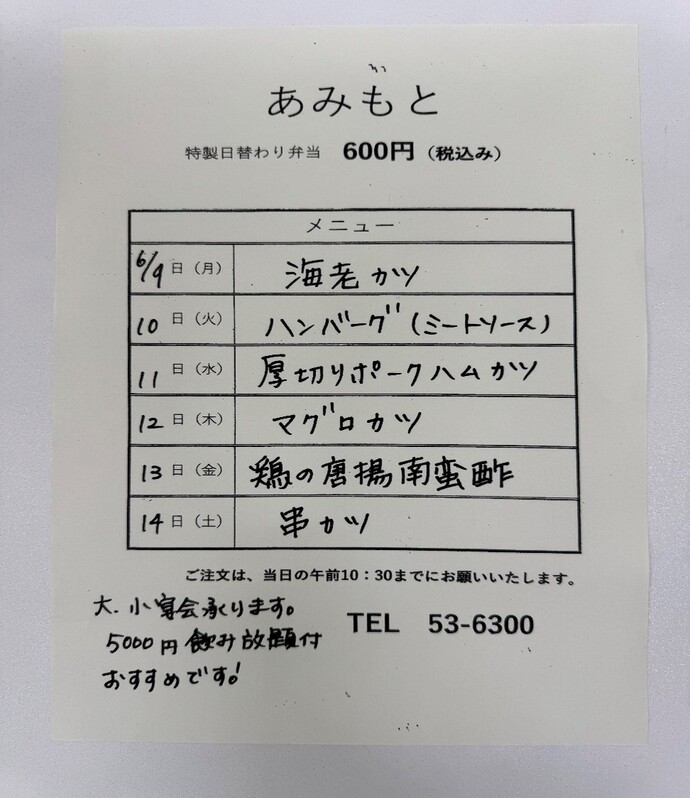 あみもと
特製日替わり弁当 600円（税込み）
メニュー
6/9日（月） 海老カツ
10日（火） ハンバーグ（ミートソース）
11日（水） 厚切りポークハムカツ
12日（木） マグロカツ
13日（金） 鶏の唐揚南蛮酢
14日（土） 串カツ
ご注文は、当日の午前10：30までにお願いいたします。
大.小宴会承ります。
TEL 53-6300
5000円飲み放題付
おすすめです!